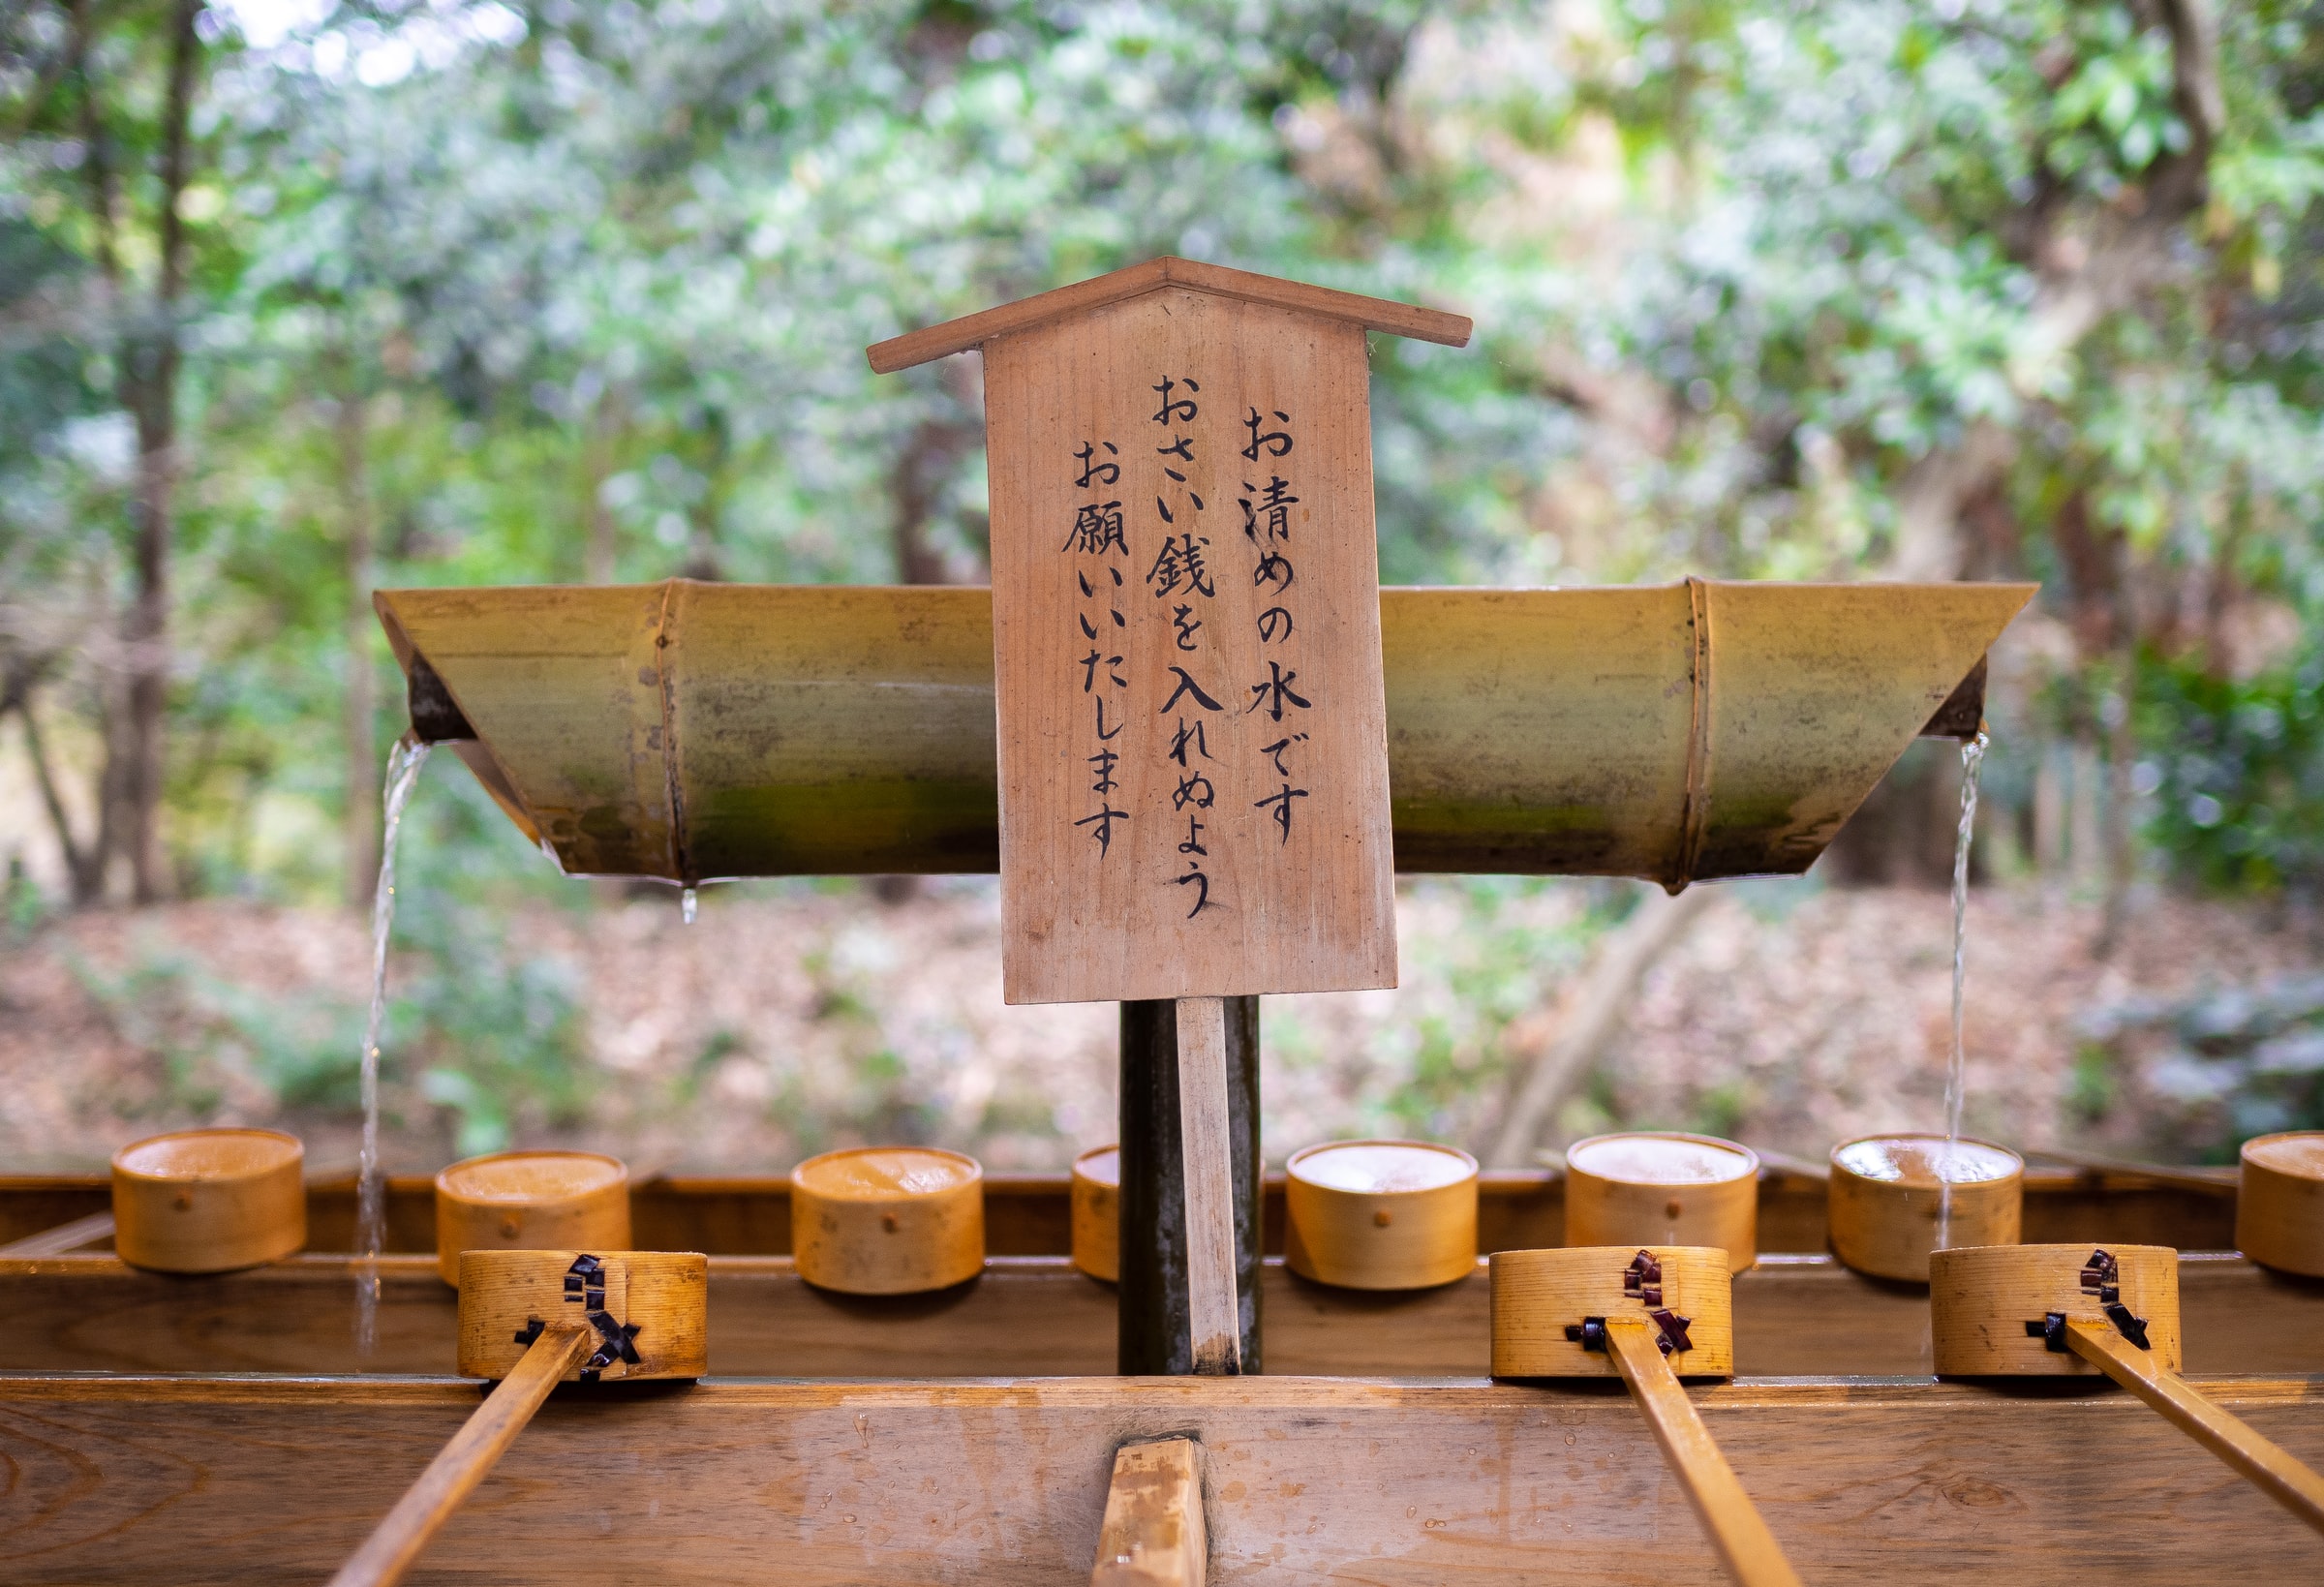 お清めの水です
おさい銭を入れぬよう
お願いいたします